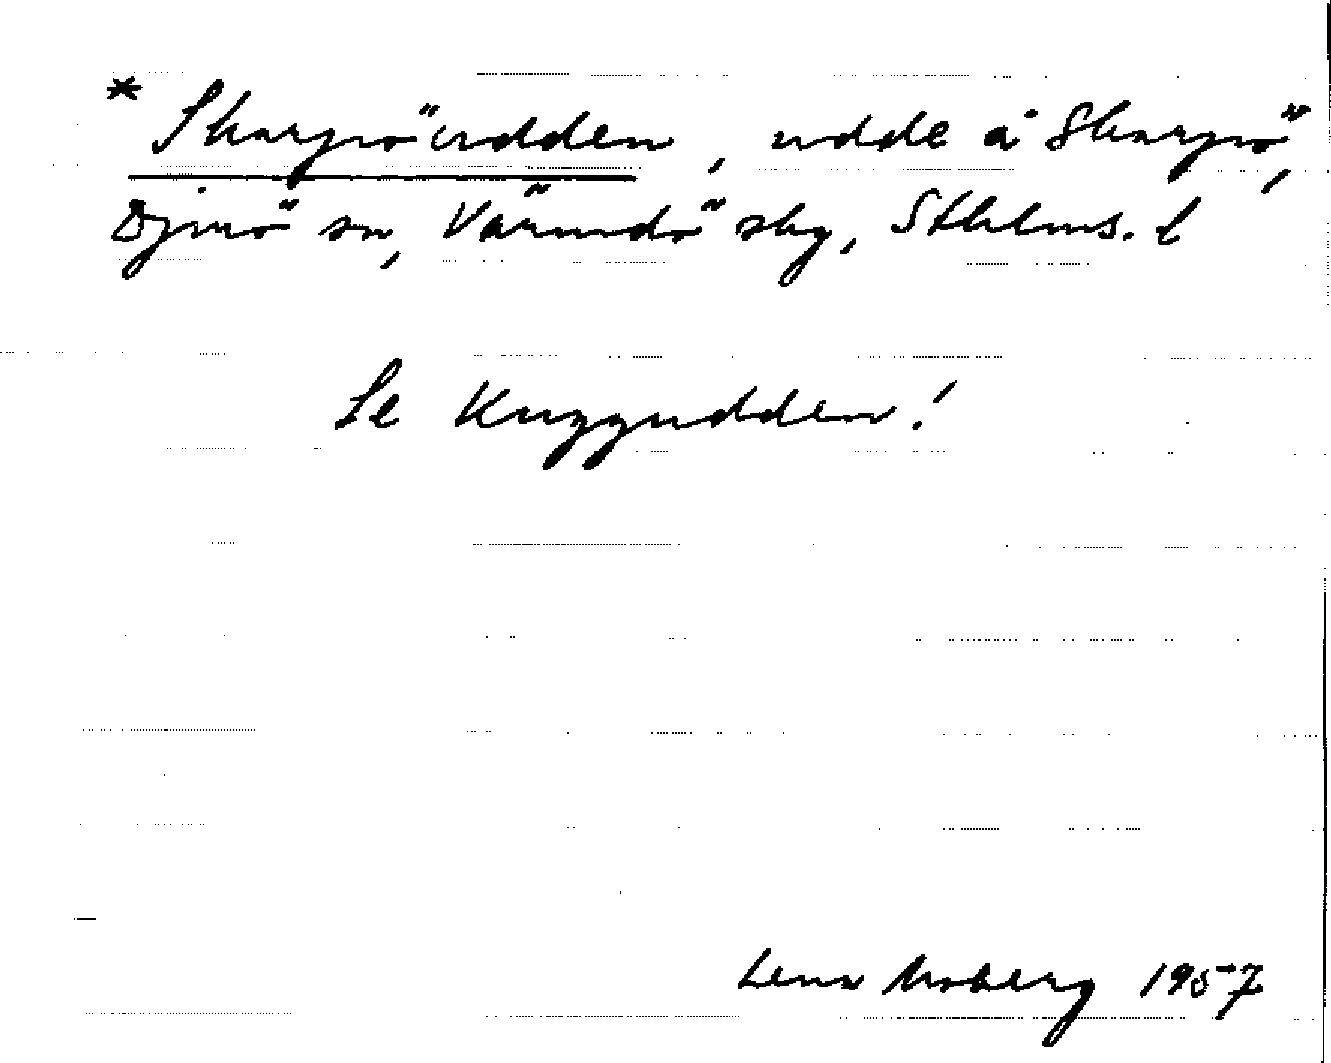 * Skarpöudden, udde å Skarpö,
Djurö sn, Värmdö sbg, Sthlms. l
Se Kuggudden!
Lena Moberg 1957